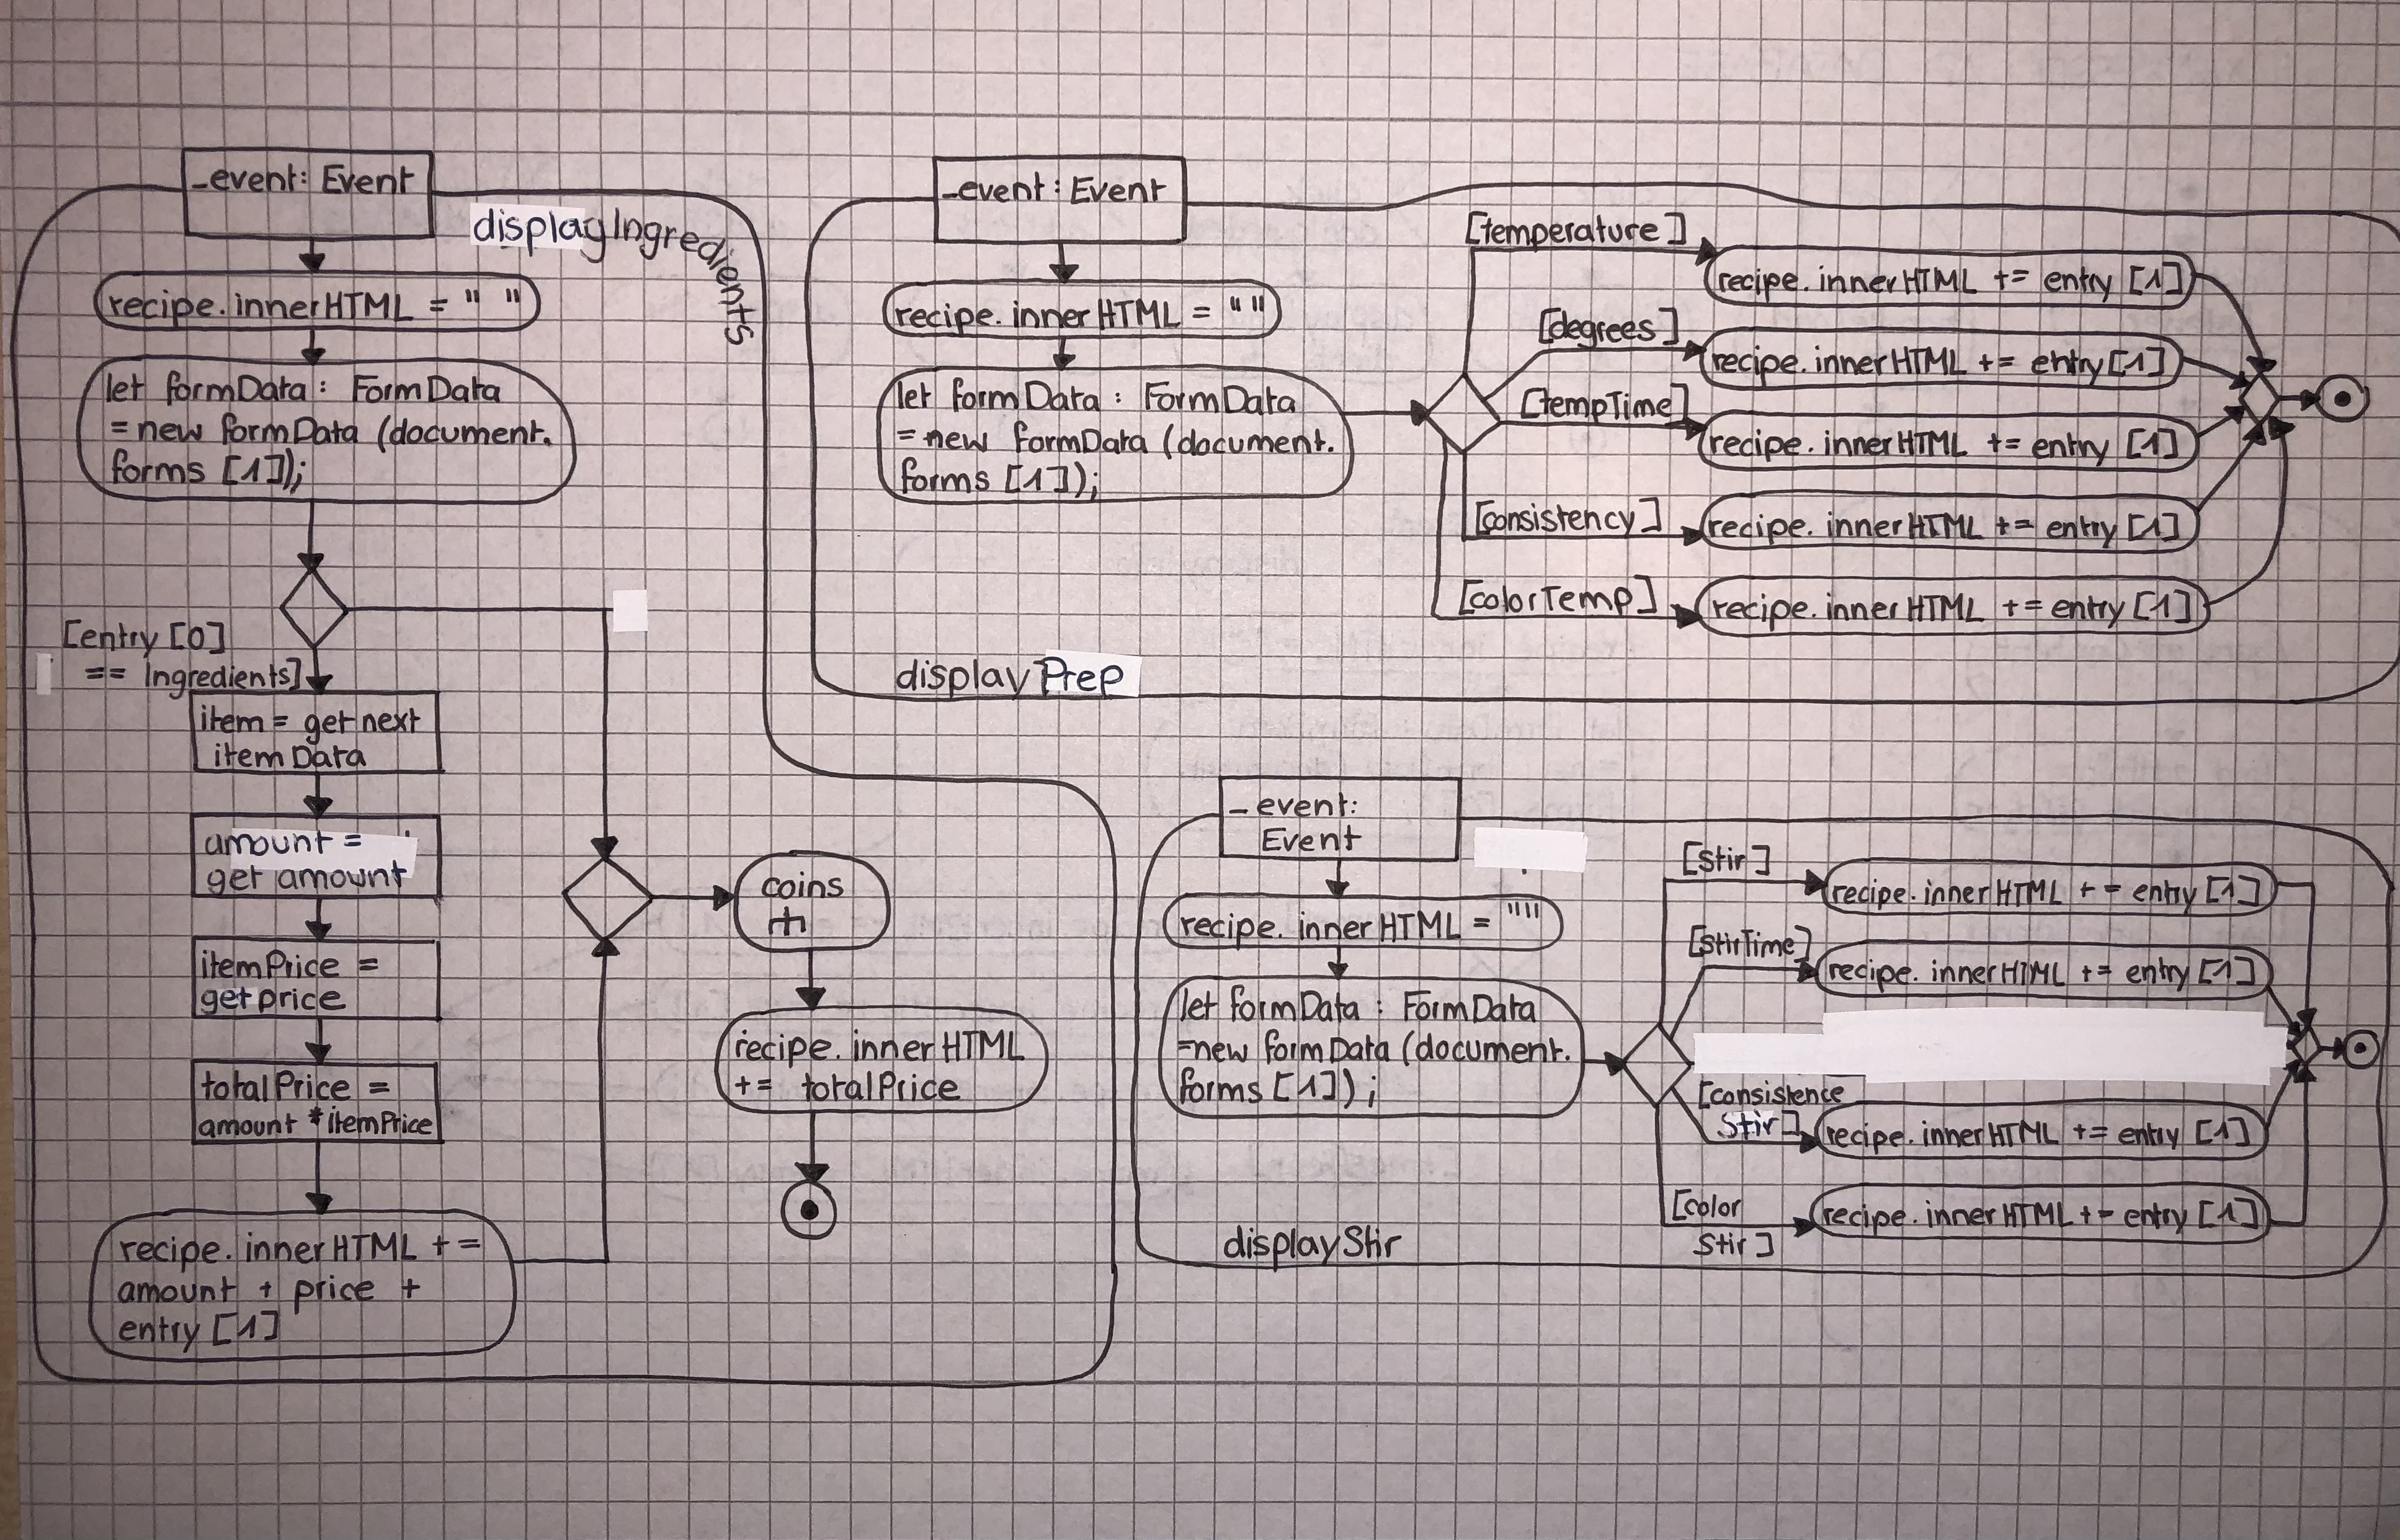 _event: Event
displayIngredients
recipe.innerHTML = " "
let formData: FormData
= new formData (document.
forms [1]);
[entry [0]
== Ingredients]
item = get next
itemData
amount =
get amount
itemPrice =
get price
totalPrice =
amount * itemPrice
recipe.innerHTML +=
amount + price +
entry [1]
coins
recipe.innerHTML
+= totalPrice
_event: Event
recipe.innerHTML = ""
let formData: FormData
= new formData (document.
forms [1]);
[temperature]
recipe.innerHTML += entry [1]
[degrees]
recipe.innerHTML += entry [1]
[tempTime]
recipe.innerHTML += entry [1]
[consistency]
recipe.innerHTML += entry [1]
[colorTemp]
recipe.innerHTML += entry [1]
displayPrep
_event:
Event
recipe.innerHTML = ""
let formData: FormData
=new formData (document.
forms [1]);
[stir]
recipe.innerHTML += entry [1]
[stirTime]
recipe.innerHTML += entry [1]
[consistence
Stir]
recipe.innerHTML += entry [1]
[color
Stir]
recipe.innerHTML += entry [1]
displayStir